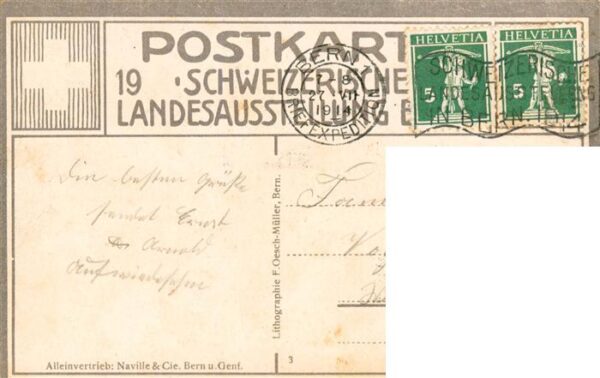 POSTKART
19 SCHWEIZERISCHE
LANDESAUSSTELLUNG BE
BERN 1
7 8
27 VII
1914
BRIEFEXPEDITION
HELVETIA
5
HELVETIA
5
SCHWEIZERISCHE
IN BERN 1914
Die besten Grüße
sendet Ernst
Arnold
Aufwiedersehn
Lithographie F. Oesch-Müller, Bern.
Alleinvertrieb: Naville & Cie. Bern u. Genf.
3